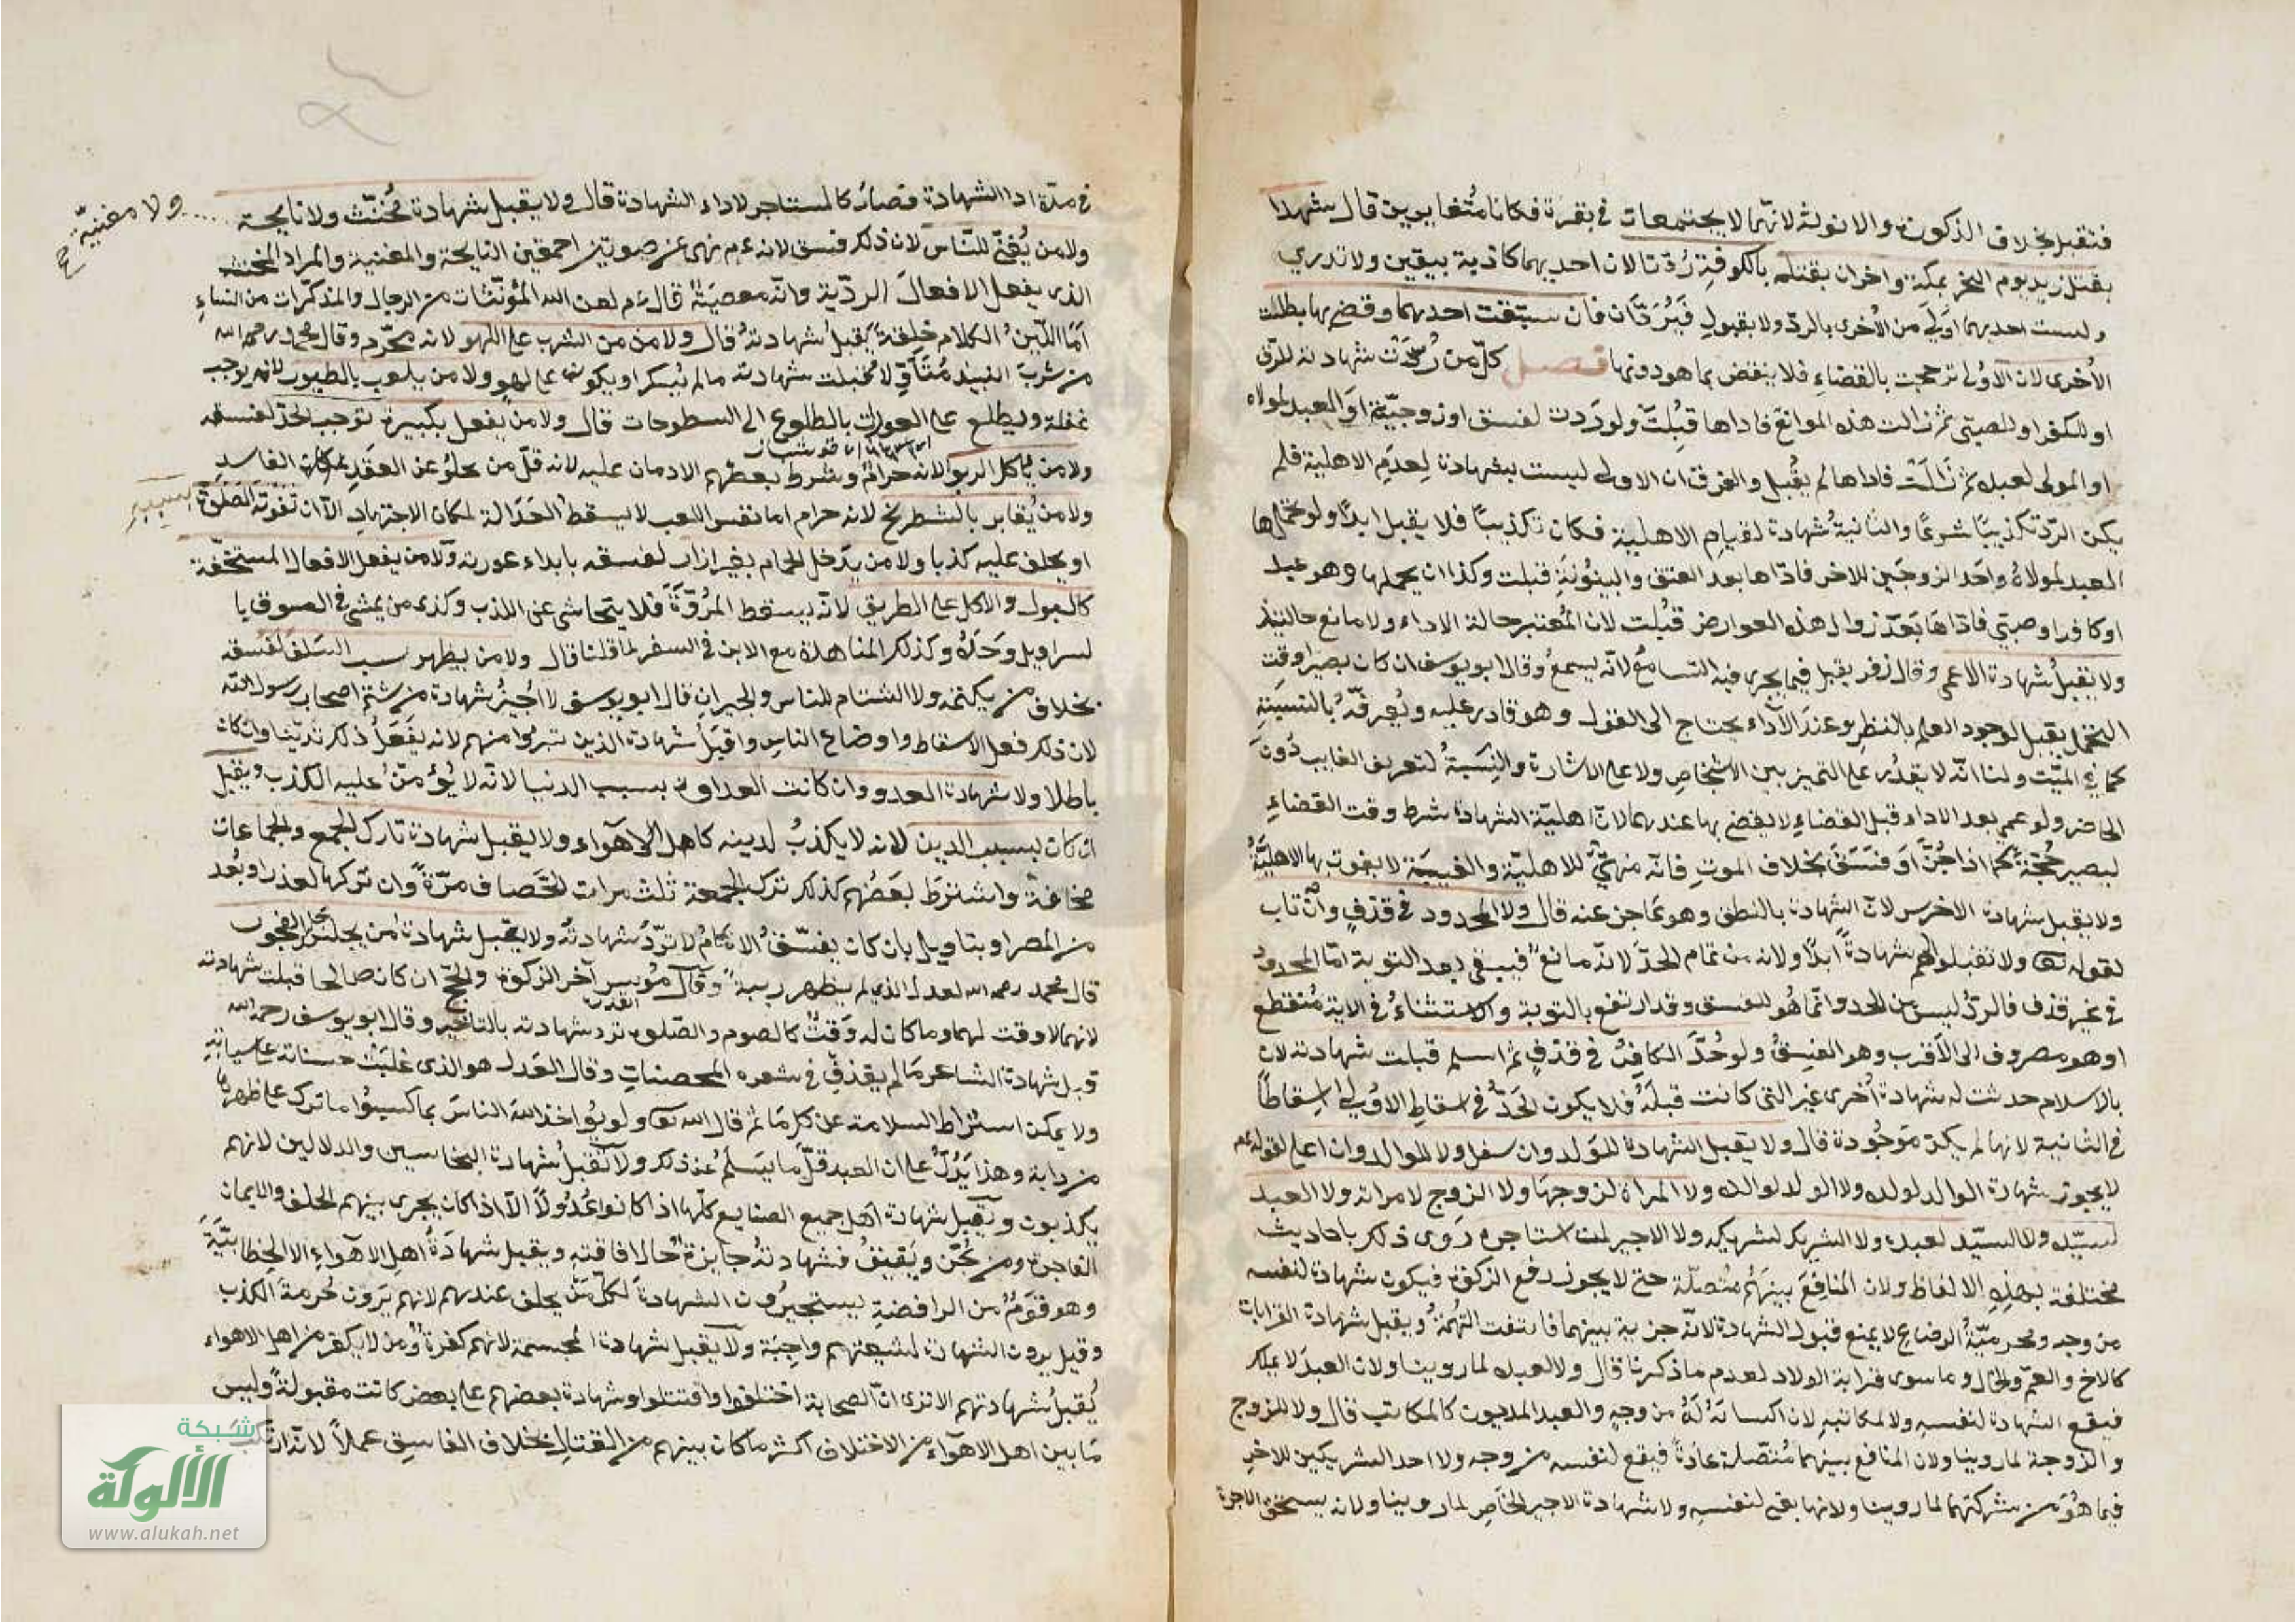 فتقبل بخلاف الذكورة والانوثة لانهما لا يجتمعان في بقرة فكانا متغايرين قال شهدا
بقتل زيد يوم النحر بمكة واخران بقتله بالكوفة رُدّتا لان احديهما كاذبة بيقين ولا تدري
وليست احديهما اولى من الأخرى بالردّ ولا بقبول فيُردّان فان سبقت احديهما وقضى بها بطلت
الأخرى لان الأولى ترجحت بالقضاء فلا ينقض بما هو دونها فصل كلّ من رُدّت شهادته للرّق
او للكفر او للصبى ثم زالت هذه الموانع فاداها قُبلت ولو رَدت لفسق او زوجيّة او العبد لمولاه
او المولى لعبده ثم زالت فاداها لم يقبل والفرق ان الاولى ليست بشهادة لعدم الاهلية فلم
يكن الردّ تكذيبًا شرعًا والثانية شهادة لقيام الاهلية فكان تكذيبًا فلا يقبل ابدًا ولو تحملها
العبد لمولاه واحد الزوجين للاخر فادّاها بعد العتق والبينونة قبلت وكذا ان تحملها وهو عبد
او كافر او صبي فادّاها بعد زوال هذه العوارض قبلت لان المُعتبر حالة الاداء ولا مانع حالتئذ
ولا يقبل شهادة الاعمى وقال زفر يقبل فيما يجرى فيه التسامع لانّه يسمع وقال ابو يوسف ان كان بصيرا وقت
التحمل يقبل لوجود العلم بالنظر وعند الأداء يحتاج الى القول وهو قادر عليه وتُعرفهُ بالتسمية
كما في الميّت ولنا انّه لا يقدر على التميز بين الاشخاص ولا على الاشارة والنسبةُ لتعريف الغايب دُونَ
الحاضر ولو عمي بعد الاداء قبل القضاء لا يقضى بها عندهما لانّ اهليّة الشهادة شرط وقت القضاء
ليصير حُجّة كما اذا جُنَّ او فسق بخلاف الموت فانّه منهيٌّ للاهليّة والغيبة لا يفوت بها الاهليّةُ
ولا يقبل شهادة الاخرس لانّ الشهادة بالنطق وهو عاجز عنه قال ولا المحدود في قذفٍ وانْ تاب
لقوله تعا ولا تقبلوا لهم شهادةً ابدًا ولانه من تمام الحدّ لانّه مانعٌ فيبقى بعد التوبة امّا المحدود
في غير قذف فالردُّ ليس من الحد وانّما هو للفسق وقد ارتفع بالتوبة والاستثناءُ في الاية مُنقطع
او هو مصروف الى الأقرب وهو الفسقُ ولو حُدَّ الكافرُ في قذفٍ ثم اسلم قبلت شهادته لان
بالاسلام حدثت له شهادة أخرى غير التى كانت قبله فلا يكون الحدّ في اسقاط الأولى اسقاطًا
في الثانية لانها لم يكن موجُودة قال ولا يقبل الشهادة للولد وان سفل ولا للوالد وان اعلى لقوله عم
لا يجوز شهادة الوالد لولده ولا الولد لوالده ولا المراة لزوجها ولا الزوج لامراته ولا العبد
لسيّده ولا السيّد لعبده ولا الشريك لشريكه ولا الاجير لمن استاجره رَوى ذلك باحاديث
مختلفة بهذه الالفاظ ولان المنافعَ بينهُم مُتصلّة حتى لا يجوز دفع الزكوة فيكون شهادة لنفسه
من وجه ومحرميّةُ الرضاع لا يمنع قبول الشهادة لانّه جزية بينهما فانتفت التُهمةُ ويقبل شهادة القرابات
كالاخ والعمّ والخال وما سوى قرابة الولاد لعدم ما ذكرنا قال ولا لعبده لما روينا ولان العبدَ لا يملك
فيقع الشهادة لنفسه ولا لمكاتبه لان اكسابَهُ لَهُ من وجهٍ والعبد المديون كالمكاتب قال ولا للزوج
والزوجة لما روينا ولان المنافع بينهما مُتصّلة عادةً فيقع لنفسه من وجه ولا احد الشريكين للاخر
فيما هُوَ من شركتهما لما روينا ولانها يقع لنفسه ولا شهادة الاجير الخاصّ لما روينا ولانه يستحقّ الاجرة
في مدّة اداا الشهادة فصارَ كالمستاجر لاداء الشهادة قال ولا يقبل شهادة مُخنّث ولا نايحة
ولا مغنيّة صح
ولا من يُغنّى للنّاس لان ذلك فسق لانه عم نهى عن صوتين احمقين النايحة والمغنية والمراد المخنث
الذى يفعل الافعالَ الرديّة وانّه معصيَةٌ قال عم لعن الله المؤنّثات من الرجال والمذكّرات من النساءِ
امّا اللّينُ الكلام خلقةً يقبلُ شهادتهُ قال ولا من من الشرب على اللهو لانه محرّم وقال محمد رحمه الله
من شربَ النبيذ مُتَأَوّلا قُبلت شهادته ما لم يُسكر او يكون على لهوٍ ولا من يلعب بالطيور لانه يوجب
غفلة وليطلع على العورات بالطلوع الى السطوحات قال ولا من يفعل بكبيرة توجب الحدّ لفسقه
ولا من ياكل الربوا لانه حرامٌ وشرط بعضُهم الادمان عليه لانه قلّ من يخلو عن العقدِ الفاسدِ
ولا من يُقامر بالشطرنج لانه حرام اما نفس اللعب لا يسقط العدالة لمكان الاجتهادِ الاّ ان تفوته الصلوة بسببه
او يحلف عليه كذبا ولا من يدخل الحمام بغير ازار لفسقه بابداء عورته ولا من يفعل الافعال المستخفّة
كالبول والاكل على الطريق لانّه يسقط المرُوَّةَ فلا يتحاشى عن الكذب وكذى من يمشى في السوق با
لسراويل وَحَدهُ وكذلك المناهلة مع الابن في السفر لما قلنا قال ولا من يظهر سب السّلف لفسقه
بخلاف من يكتمه ولا الشتام للناس والجيرانِ قال ابو يوسف لا اُجيزُ شهادة من شتم اصحاب رسول الله
لان ذلك فعل الاسقاط واوضاع الناس واقبلُ شهادة الذين تبرؤا منهم لانه يفعلُ ذلك تديّنا وان كان
باطلا ولا شهادة العدو وان كانت العداوة بسبب الدنيا لانّه لا يؤمنُ عليه الكذب ويقبل
ان كان بسبب الدين لانه لا يكذبُ لدينه كاهل الاهواء ولا يقبل شهادة تارك الجمع والجماعات
مجانةً واشترط بعضُهم كذلك ترك الجمعة ثلث مرات الخصاف مرّةً وان تركها لعذر او بُعد
من المصر او بتاويل بان كان يفسّقُ الامام لا تردُّ شهادتُه ولا يقبل شهادة من يجلس الفجور
قال محمد رحمه الله العدل الذي لم يظهر ريبةٌ وقال مُوسر آخر الزكوة والحجّ ان كان صالحا قبلت شهادته
لانهما لا وقت لهما وما كان له وقتٌ كالصوم والصّلوة ترد شهادته بالتاخير وقال ابو يوسف رحمه الله
قبل شهادة الشاعر ما لم يقذفْ في شعره المحصناتِ وقال العَدل هو الذى غلبَتْ حسناته على سيئاتِه
ولا يمكن اشتراط السلامة عن كل مأثم قال الله تعا ولو يؤاخذ الله الناسَ بما كسبوا ما ترك على ظهرها
من دابة وهذا يدلُّ على ان العبد قلّ ما يَسلمُ عن ذلك ولا تقبلُ شهادة النخاسين والدلالين لانهم
يكذبون ويقبل شهادة اهل جميع الصنايع كلّها اذا كانوا عُدُولاً الّا اذا كان يجرى بينهم الحلف والايمان
الفاجرة ومن يُجَنّ ويَفيقُ فشهادتهُ جايزة حال افاقته ويقبل شهادَةُ اهل الاهواءِ الا الخطابيّة
وهو قوَمٌ من الرافضة يستجيزُون الشهادةَ لكلّ مَنْ يحلف عندهم لانهم يَرَون حُرمة الكذب
وقيل يرون الشهادة لشيعتهم واجبة ولا يقبل شهادة المجسمة لانهم كفرةٌ ومن لا يكفر من اهل الاهواء
يُقبلُ شهادتهم الا ترى انّ الصحابة اختلفوا واقتتلوا وشهادة بعضهم على بعض كانت مقبولةً وليس
مَا بين اهل الاهواء من الاختلاف اكثر ما كان بينهم من القتال بخلاف الفاسق عملاً لانّه ارتكب
شبكة
الألوكة
www.alukah.net